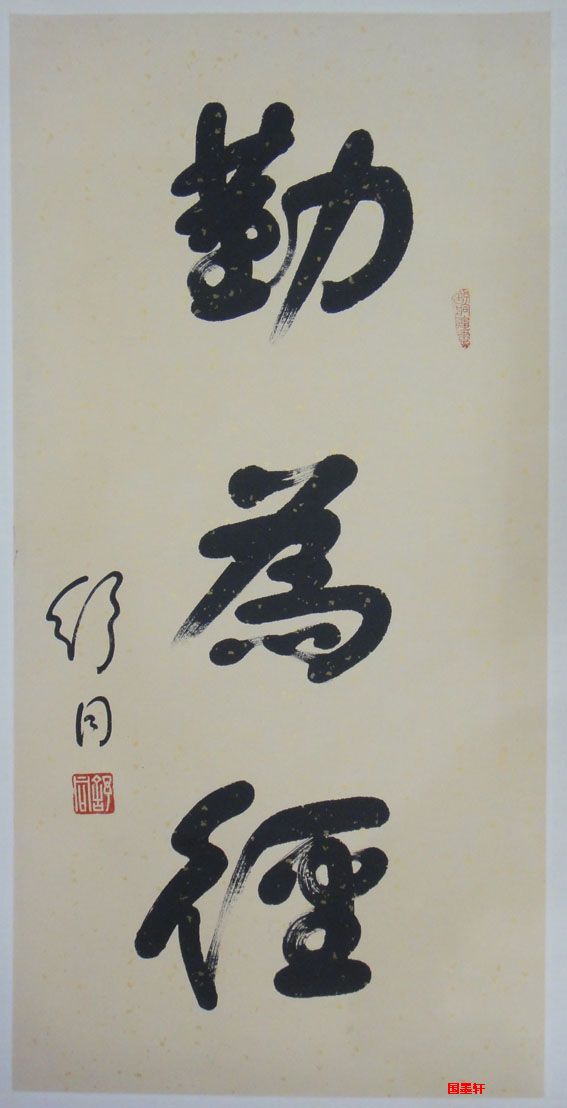 勤為徑
舒同
舒同
国墨轩